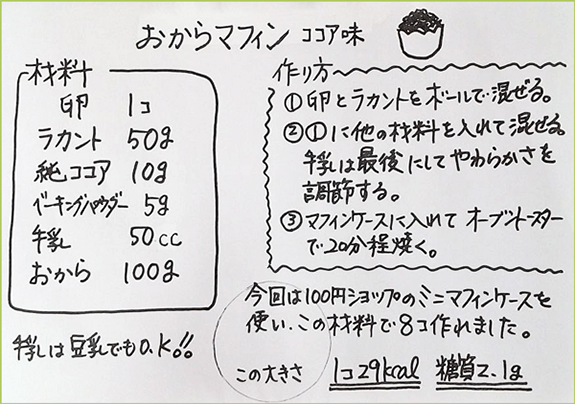 おからマフィン ココア味
材料
卵 1コ
ラカント 50g
純ココア 10g
ベーキングパウダー 5g
牛乳 50cc
おから 100g
牛乳は豆乳でもO.K!!
作り方
①卵とラカントをボールで混ぜる。
②①に他の材料を入れて混ぜる。
牛乳は最後にしてやわらかさを
調節する。
③マフィンケースに入れてオーブントースター
で20分程焼く。
今回は100円ショップのミニマフィンケースを
使い、この材料で8コ作れました。
この大きさ 1コ29kcal 糖質2.1g